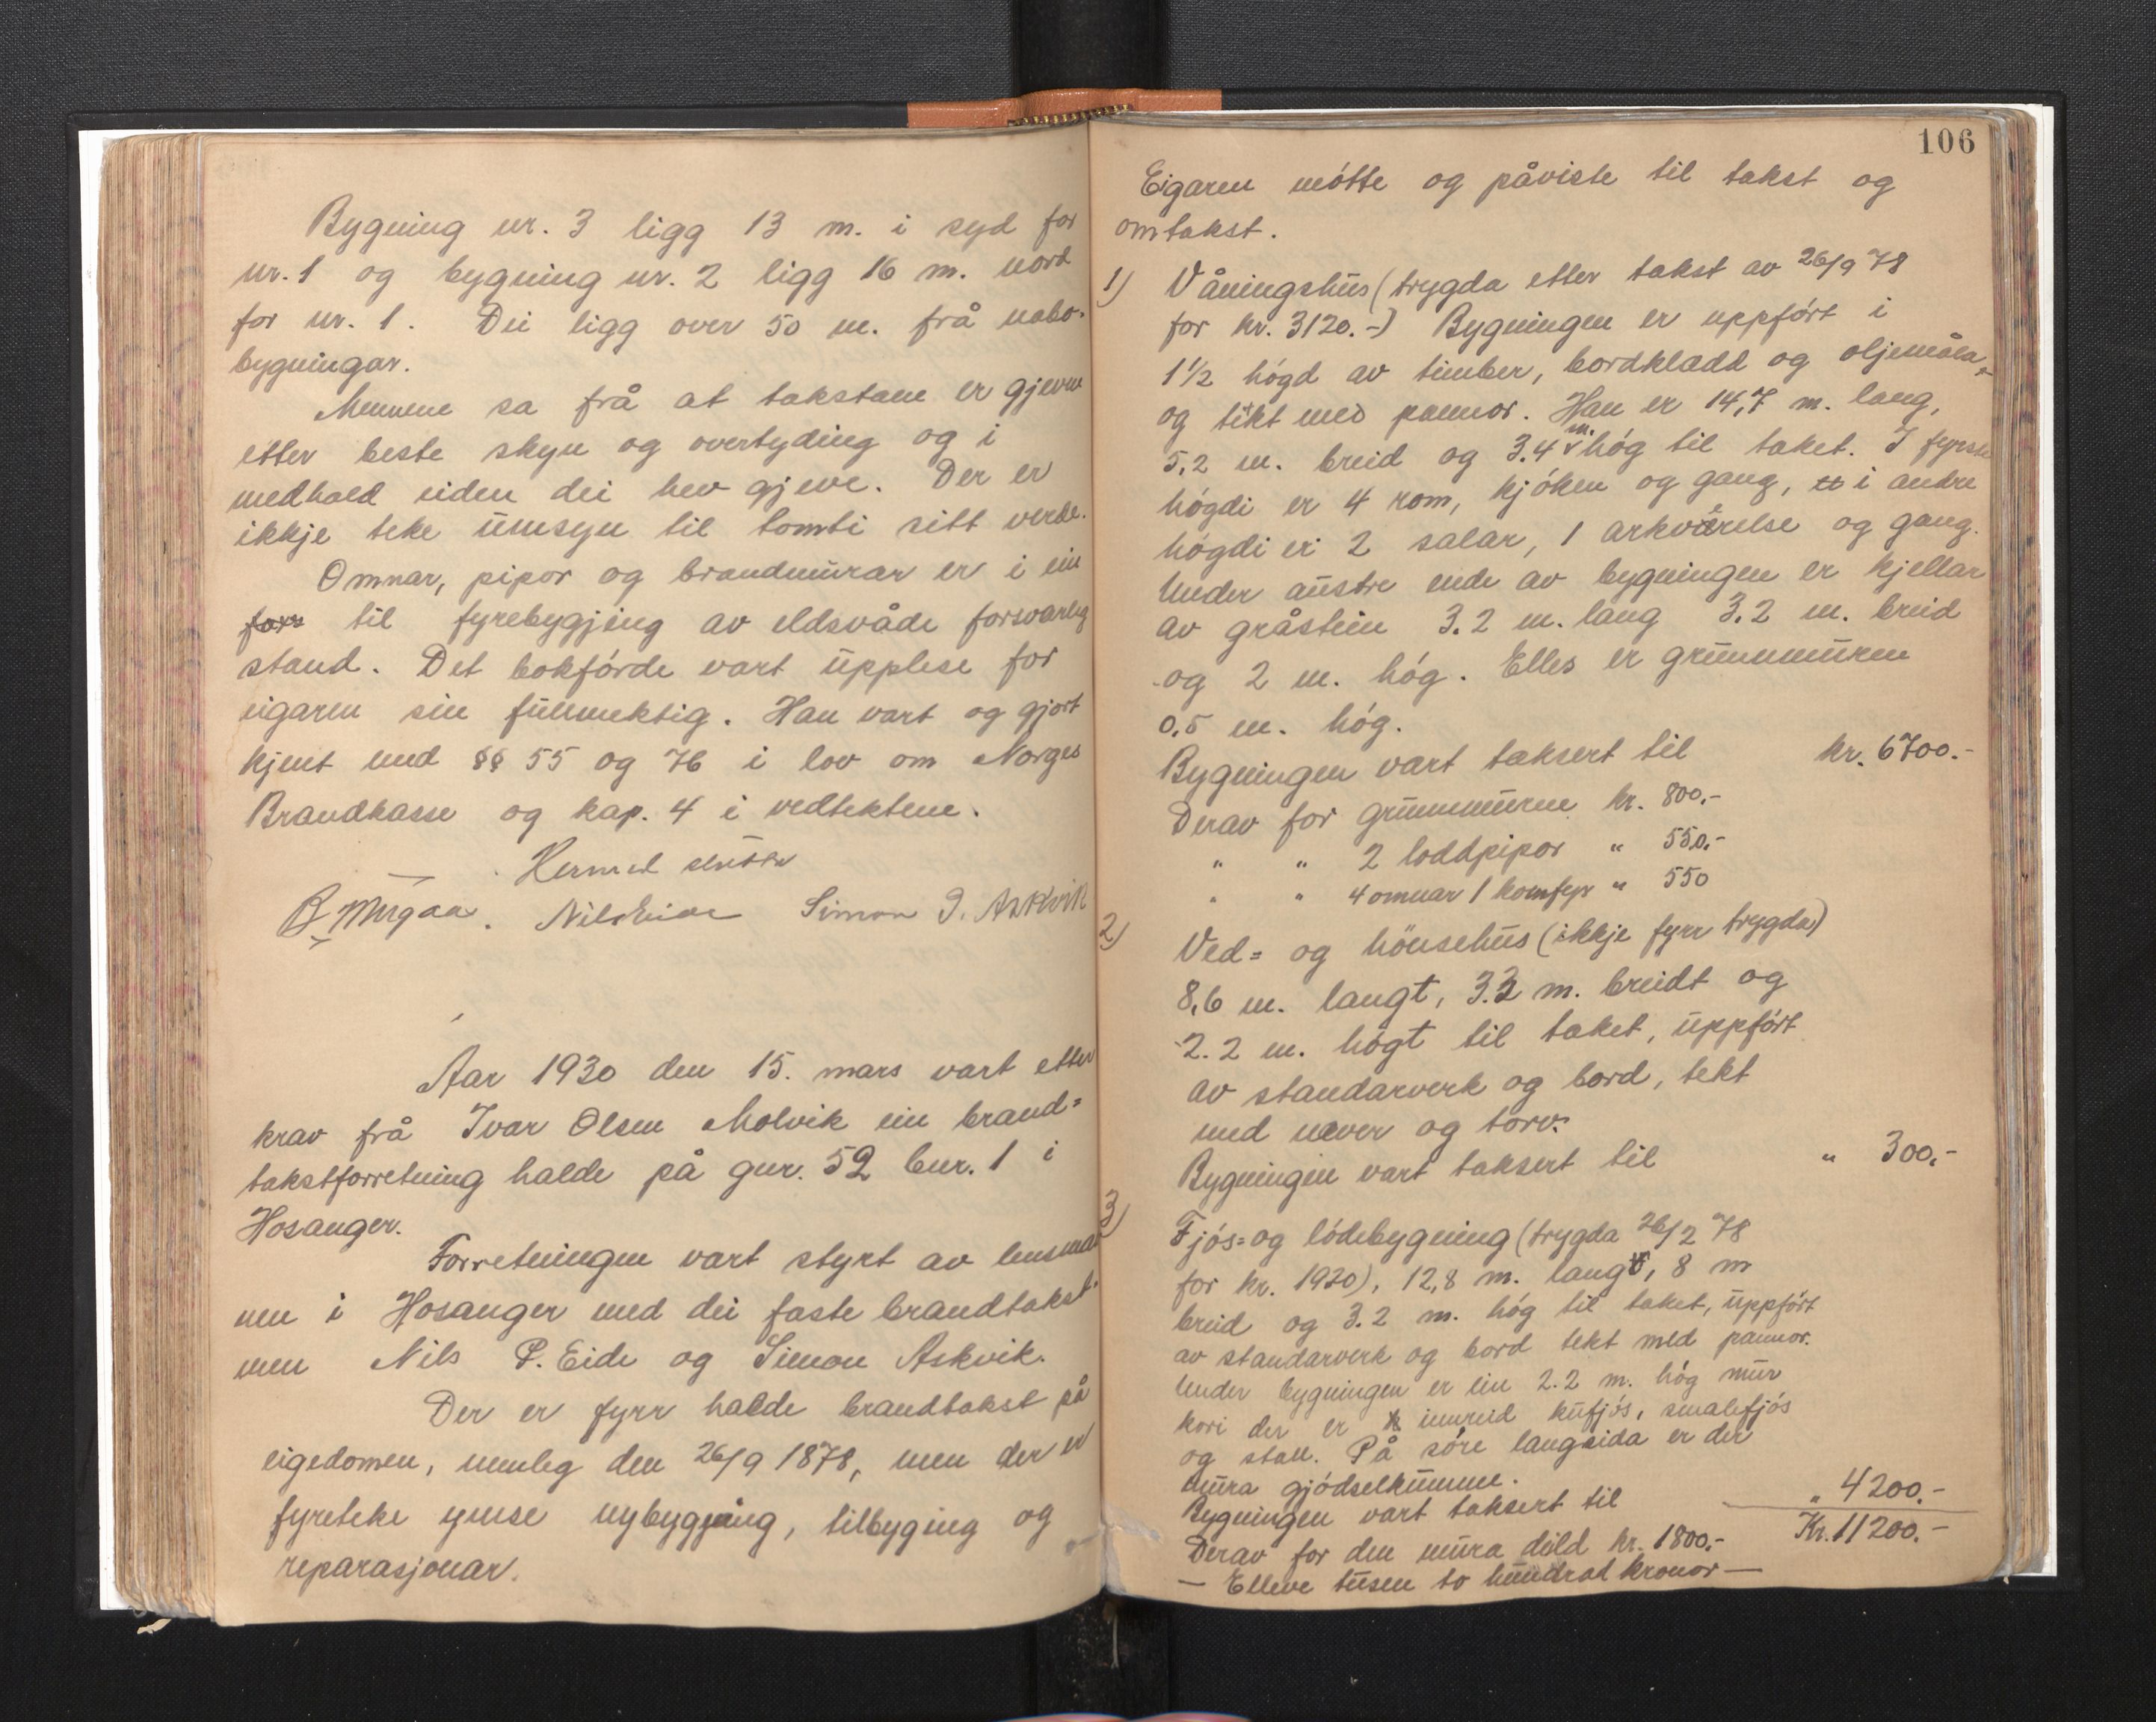 Bygning nr. 3 ligg 13 m. i syd for
nr. 1 og bygning nr. 2 ligg 16 m. nord
for nr. 1. Dei ligg over 50 m. frå nabo-
bygningar.
Mennene sa frå at takstane er gjevne
etter beste skyn og overtyding og i
medhald eiden dei hev gjeve. Der er
ikkje teke umsyn til tomti sitt verde.
Omnar, pipor og brandmurar er i ein
til fyrebygjing av eldsvåde forsvarleg
stand. Det bokførde vart upplese for
eigaren sin fullmektig. Han vart og gjort
kjent med §§ 55 og 76 i lov om Norges
Brandkasse og kap. 4 i vedtektene.
Hermed slutta
Nils Eide Simon I. Askvik
Aar 1930 den 15. mars vart etter
krav frå Ivar Olsen Molvik ein brand=
takstforretning halde på gnr. 52 bnr. 1 i
Hosanger.
Forretningen vart styrt av lensman
nen i Hosanger med dei faste brandtakst-
men Nils P. Eide og Simon Askvik.
Der er fyrr halde brandtakst på
eigedomen, nemleg den 26/9 1878, men der er
fyreteke ymse nybygging, tilbyging og
reparasjonar.
106
Eigaren møtte og påviste til takst og
omtakst.
1) Våningshus (trygda etter takst av 26/9 78
for kr. 3120.-) Bygningen er uppført i
1½ høgd av timber, bordkledd og oljemåla,
og tekt med pannor. Han er 14,7 m. lang,
5,2 m. breid og 3.4 m. høg til taket. I fyrste
høgdi er 4 rom, kjøken og gang, i andre
høgdi er 2 salar, 1 arkværelse og gang.
Under austre ende av bygningen er kjellar
av gråstein 3.2 m. lang 3.2 m. breid
og 2 m. høg. Elles er grunnmuren
0,5 m. høg.
Bygningen vart taksert til kr. 6700.-
Derav for grunnmuren kr. 800.-
" " 2 loddpipor " 550.-
" " 4 omnar 1 komfyr " 550
2) Ved= og hönsehus (ikkje fyrr trygda)
8,6 m. langt, 3.3 m. breidt og
2.2 m. høgt til taket, uppført
av standarverk og bord, tekt
med never og torv.
Bygningen vart taksert til " 300.-
3) Fjøs= og lødebygning (trygda 26/2 78
for kr. 1920), 12,8 m. lang, 8 m
breid og 3.2 m. høg til taket, uppført
av standarverk og bord tekt med pannor.
Under bygningen er ein 2.2 m. høg mur
kori der er innreid kufjøs, smalefjøs
og stall. På søre langsida er der
mura gjødselkumme.
Bygningen vart taksert til " 4200.-
Derav for den mura deild kr. 1800.- Kr. 11200.-
— Elleve tusen to hundrad kronor —